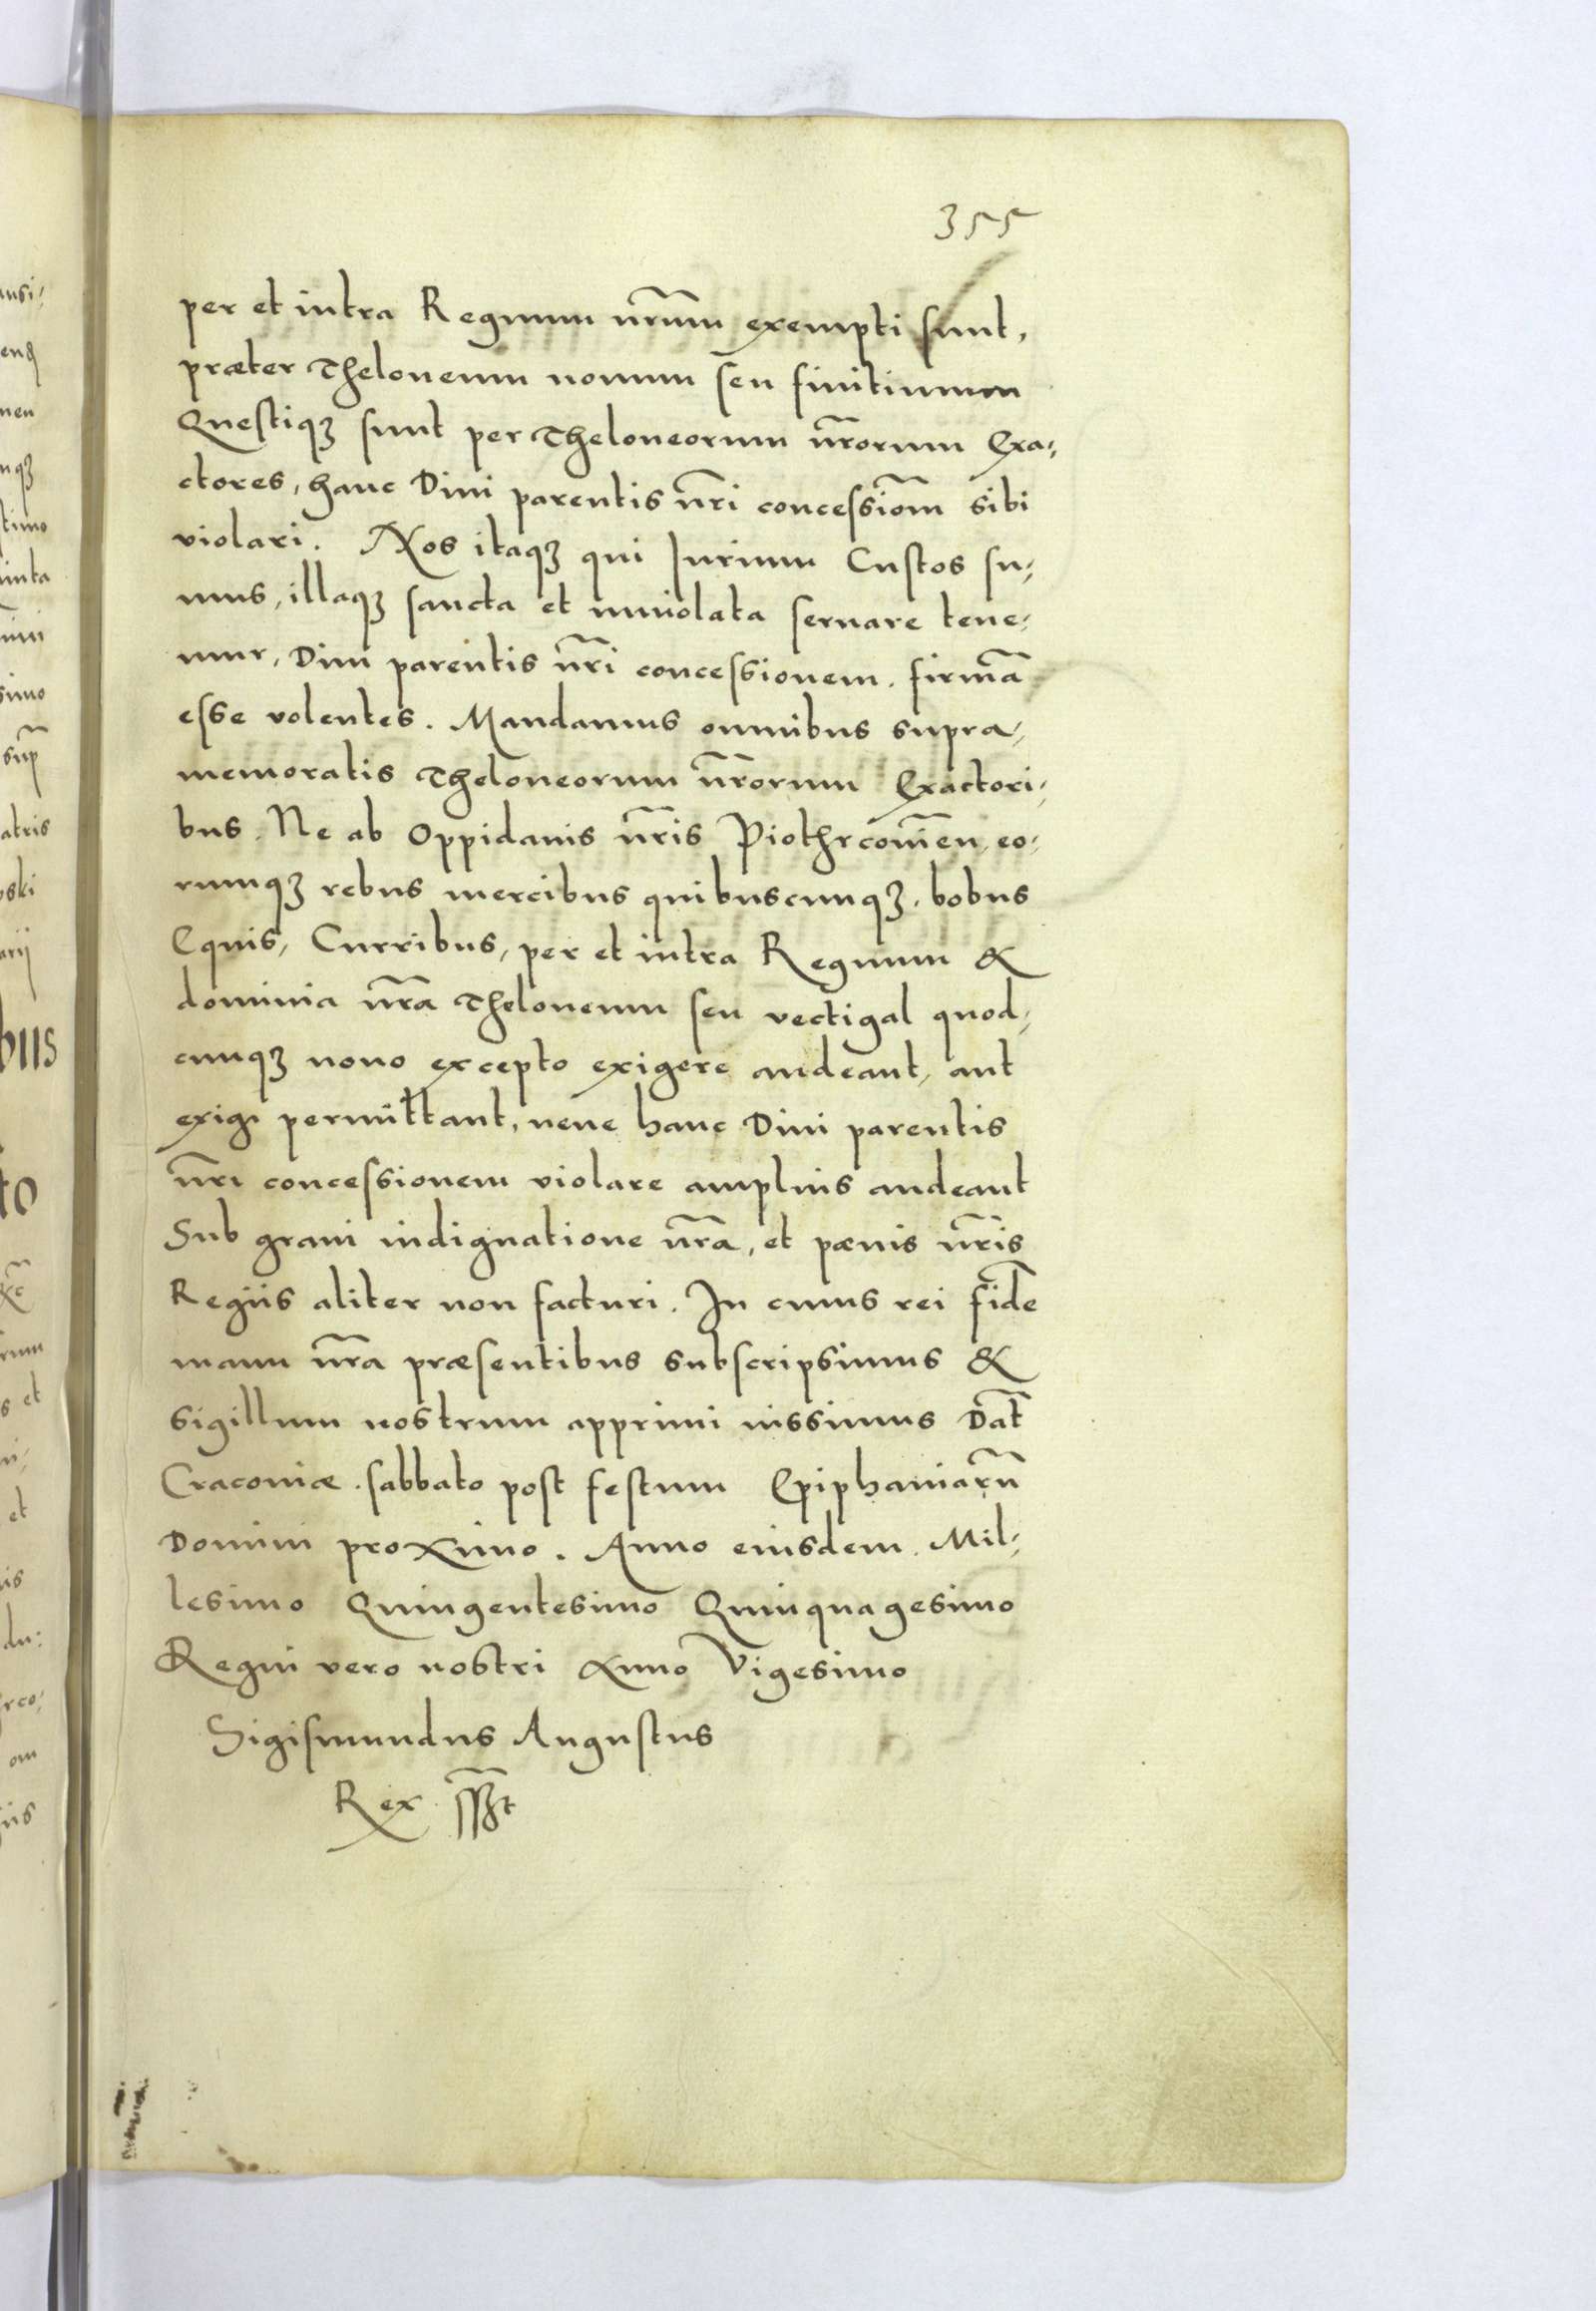 355
per et intra Regnum nr̃um exempti sunt,
præter Theloneum nouum seu finitimum
Questiqꝫ sunt per Theloneorum nr̃orum Exa-
ctores, hanc Diui parentis nr̃i concessiõm sibi
violari. Nos itaqꝫ qui Iurium Custos su-
mus, illaqꝫ sancta et inuiolata seruare tene-
mur, Diui parentis nr̃i concessionem. firmã
esse volentes. Mandamus omnibus supra-
memoratis Theloneorum nr̃orum Exactori-
bus. Ne ab Oppidanis nr̃is Piothrcouieñ. eo-
rumqꝫ rebus mercibus quibuscunqꝫ. bobus
Equis, Curribus, per et intra Regnum &
dominia nr̃a Theloneum seu vectigal quod-
cunqꝫ nouo excepto exigere audeant, aut
exigi permittant, neue hanc Diui parentis
nr̃i concessionem violare amplius audeant
Sub graui indignatione nr̃a, et pœnis nr̃is
Regiis aliter non facturi. In cuius rei fidẽ
manu nr̃a præsentibus subscripsimus &
sigillum nostrum apprimi iussimus Dat̃
Cracouiæ. sabbato post festum Epiphaniarũ
Domini proximo. Anno eiusdem. Mil-
lesimo Quingentesimo Quinquagesimo
Regni vero nostri Anno Vigesimo
Sigismundus Augustus
Rex. ss̃zt